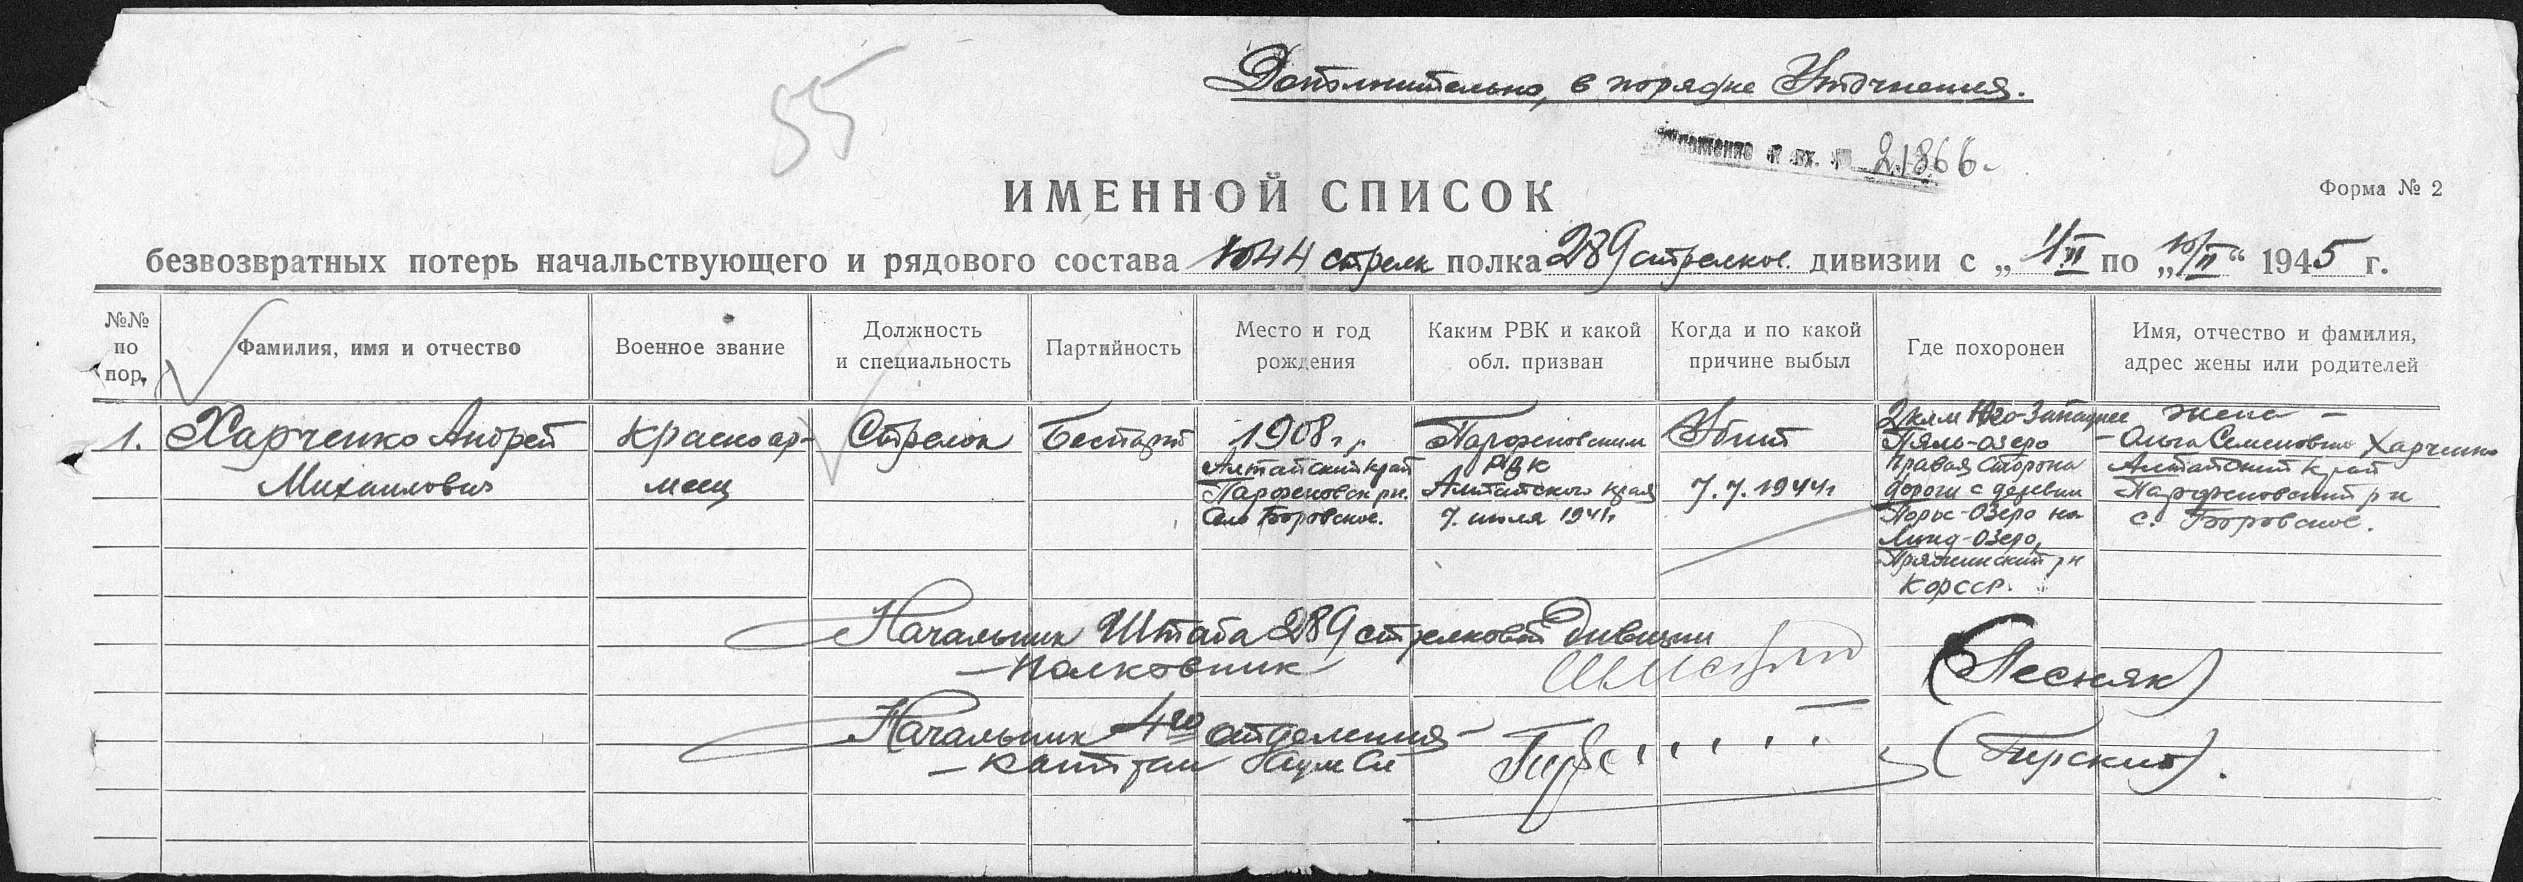 55
Дополнительно, в порядке Уточнения.
21866
ИМЕННОЙ СПИСОК
Форма № 2
безвозвратных потерь начальствующего и рядового состава 1044 стрелк полка 289 стрелков. дивизии с „1/II по „10/II“ 1945 г.
№№ по пор.
Фамилия, имя и отчество
Военное звание
Должность и специальность
Партийность
Место и год рождения
Каким РВК и какой обл. призван
Когда и по какой причине выбыл
Где похоронен
Имя, отчество и фамилия, адрес жены или родителей
1.
Харченко Андрей
Михаилович
Красноар-
меец
Стрелок
Беспарт
1908 г.р.
Алтайский край
Парфеновск рн.
Село Боровское.
Парфеновским
РВК
Алтайского края
7. июля 1941г
Убит
7.7.1944г
2 клм Юго-Западнее
Пяль-озеро
правая сторона
дороги с деревни
Порос-Озеро на
Линд-Озеро,
Пряжинский рн
КФССР.
жена –
– Ольга Семеновна Харченко
Алтайский край
Парфеновский рн
с. Боровское.
Начальник Штаба 289 стрелковой Дивизии
– полковник
(Песняк)
Начальник 4го отделения –
– капитан
(Гирский).